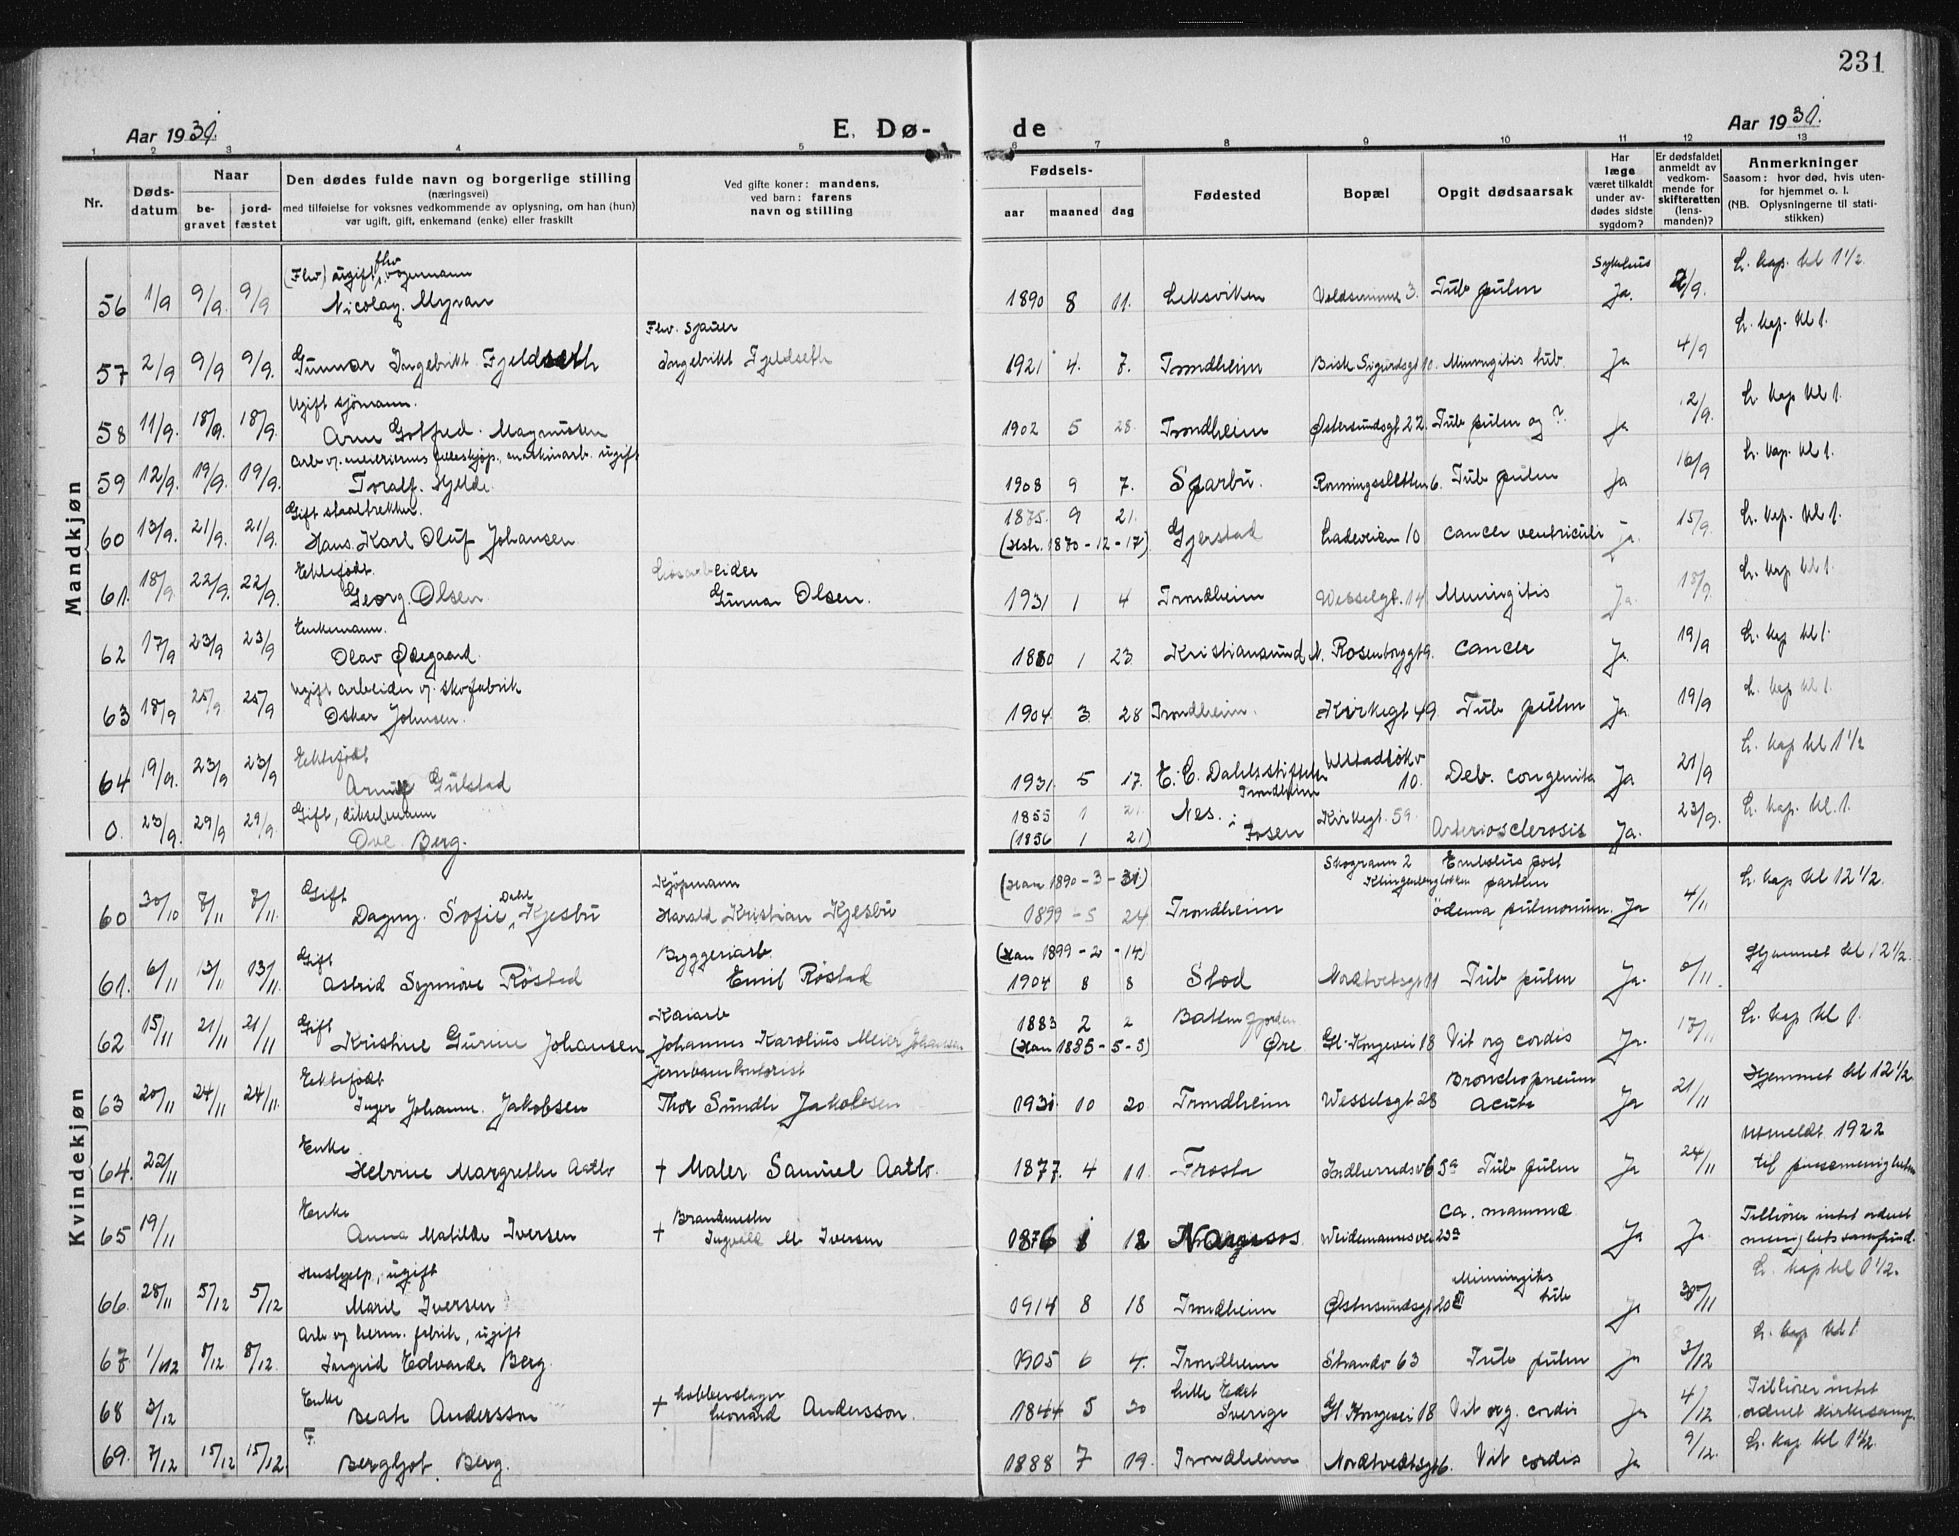 231
Aar 1931.
E. Dø-
de
Aar 1931.
1 2 3 4 5 6 7 8 9 10 11 12 13
Nr.
Døds-
datum
Naar
be-
gravet
jord-
fæstet
Den dødes fulde navn og borgerlige stilling
(næringsvei)
med tilføielse for voksnes vedkommende av oplysning, om han (hun)
var ugift, gift, enkemand (enke) eller fraskilt
Ved gifte koner: mandens,
ved barn: farens
navn og stilling
Fødsels-
aar
maaned
dag
Fødested
Bopæl
Opgit dødsaarsak
Har
læge
været tilkaldt
under av-
dødes sidste
sygdom?
Er dødsfaldet
anmeldt av
vedkom-
mende for
skifteretten
(lens-
manden)?
Anmerkninger
Saasom: hvor død, hvis uten-
for hjemmet o. l.
(NB. Oplysningerne til stati-
stikken)
Mandkjøn
(Flv) ugift, flv. Sykehus L. kap. kl 1 1/2
56 1/9 9/9. 9/9 Nicolay Myran 1890 8 11. Leksviken 3. Tub pulm Ja. 2/9.
Flv. sjauer L. kap. kl 1.
57 2/9 9/9 9/9. Gunnar Ingebrikt Fjeldseth Ingebrikt Fjeldseth 1921 4. 7. Trondheim Bisk Sigurdsgt 10. Meningitis tub. Ja 4/9
Ugift sjømann. L. kap kl 1.
58 11/9. 18/9. 18/9. Arne Gotfred Magnussen 1902 5 28. Trondheim Østersundsgt 22. Tub pulm og ? Ja 12/9.
Arb. v. meieriernes felleskjøp, maskinarb. ugift L. kap. kl 1.
59 12/9. 19/9. 19/9. Toralf Hjelde 1908 9 7. Sparbu. Ronningssletten 6. Tub pulm Ja 16/9
Gift staaltrekker. 1875. 9 21. L. kap. kl 1.
60 13/9. 21/9. 21/9. Hans Karl Oluf Johansen (Hstr. 1870-12-17) Gjerstad Ladeveien 10 Cancer ventriculi Ja. 15/9.
Ektefødt. Løsarbeider L. kap kl 1.
61. 18/9. 22/9. 22/9. Georg Olsen Gunnar Olsen. 1931 1 4 Trondheim Wesselsgt. 14 Meningitis Ja. 18/9.
Enkemann. L. kap kl 1.
62 17/9 23/9 23/9 Olav Ødegaard 1880 1 23 Kristiansund N. Rosenborggt 9. Cancer Ja 19/9
Ugift arbeider v. skofabrik L. kap kl 1.
63 18/9 25/9 25/9 Oskar Johnsen. 1904. 3. 28 Trondheim. Kirkegt 49 Tub pulm Ja 19/9
Ektefødt L. kap kl 1 1/2
64 19/9. 23/9 23/9 Gulstad 1931. 5 17. E. C. Dahlsstiftelse Trondheim 10. Deb. congenita Ja 21/9
Gift, 1855 1 21. Nes. i L. kap. kl. 1.
0. 23/9. 29/9 29/9. Ove Berg. (1856 1 21) Fosen Kirkegt. 59. Arteriosclerosis Ja. 23/9.
Kvindekjøn
Gift Kjøpmann (Han 1890-3-31) Skogrann 2 Embolus post partum L. kap kl 12 1/2.
60 30/10 7/11 7/11. Dagny Sofie Dahl Kjesbu Harald Kristian Kjesbu 1899-5 24 Trondheim ödema pulmonum. Ja 4/11
Gift Byggeriarb. (Han 1899-2-14) Hjemmet kl 12 1/2.
61. 6/11 13/11 13/11. Astrid Synnöve Röstad Emil Röstad 1904 8 8 Stod Nordtvetsgt 11 Tub pulm Ja. 8/11.
Gift Kaiarb 1883 2 2 Battenfjorden L. kap kl 1.
62 15/11 21/11 21/11 Kristine Gurine Johansen Johannes Karolius Meier Johansen (Han 1885-5-5) Øre Gl. Kongevei 18 Vit org cordis Ja. 17/11
Ektefødt jernbanekontorist Bronchopneum Hjemmet kl 12 1/2
63 20/11 24/11 24/11. Inger Johanne Jakobsen Thor Sundli Jakobsen 1931. 10 20 Trondheim Wesselsgt 28 acuta Ja 21/11
Enke Utmeldt 1922
64. 22/11 Helvine Margrethe Aatlo + Maler Samuel Aatlo. 1877. 4 11. Frosta Indherredsv 65a Tub pulm Ja 24/11 til pinsemenigheten
Enke Brandmester Ca. mammæ Tilhører intet ordnet
65 19/11 Anna Matilde Iversen + Ingvald M Iversen 1876 1 12 Weidemannsvei 23a Ja Ja menighetssamfund.
Hushjelp, ugift Meningitis L. kap kl 1 1/2.
66. 28/11 5/12 5/12 Marie Iversen 1914 8 18 Trondheim Østersundsgt 20 tub Ja 30/11
Arb v herm. fabrik, ugift L. kap kl 1
67 1/12 8/12 8/12. Ingrid Edvarda Berg 1905 6 4. Trondheim Strandv 63 Tub pulm Ja 3/12
Enke kobberslager Lille Edet Tilhører intet
68 3/12 Beate Andersson + Leonard Andersson. 1844 5 30 Sverige Gl Kongevei 18 Vit org. cordis Ja 4/12 ordnet kirkesamf.
F.
69. 7/12 15/12 15/12. Bergljot Berg. 1888 7 19. Trondheim Nordtvedtsgt 6. Vit cordis Ja 9/12. L. kap kl 1 1/2.